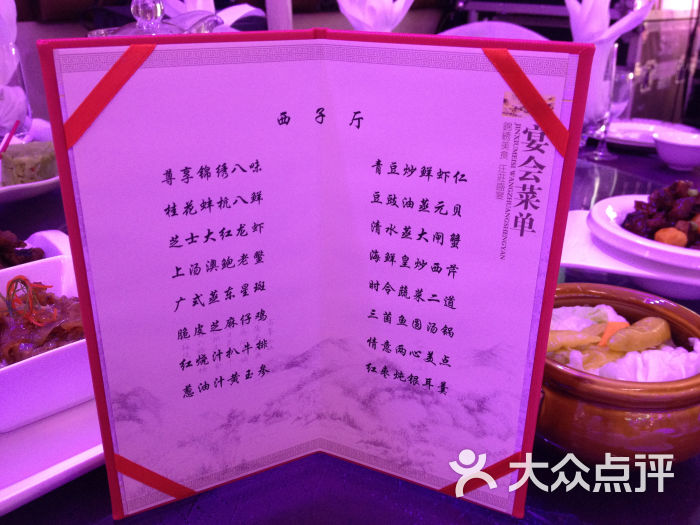 西子厅
尊享锦绣八味
桂花蚌杭八鲜
芝士大红龙虾
上汤澳鲍老蟹
广式蒸东星斑
脆皮芝麻仔鸡
红烧汁扒牛排
葱油汁黄玉参
青豆炒鲜虾仁
豆豉油蒸元贝
清水蒸大闸蟹
海鲜皇炒西芹
时令蔬菜二道
三菌鱼圆汤锅
情意两心美点
红枣炖银耳羹
宴会菜单
JINXIUMEISI WANGZHUANGSHENGYAN
大众点评